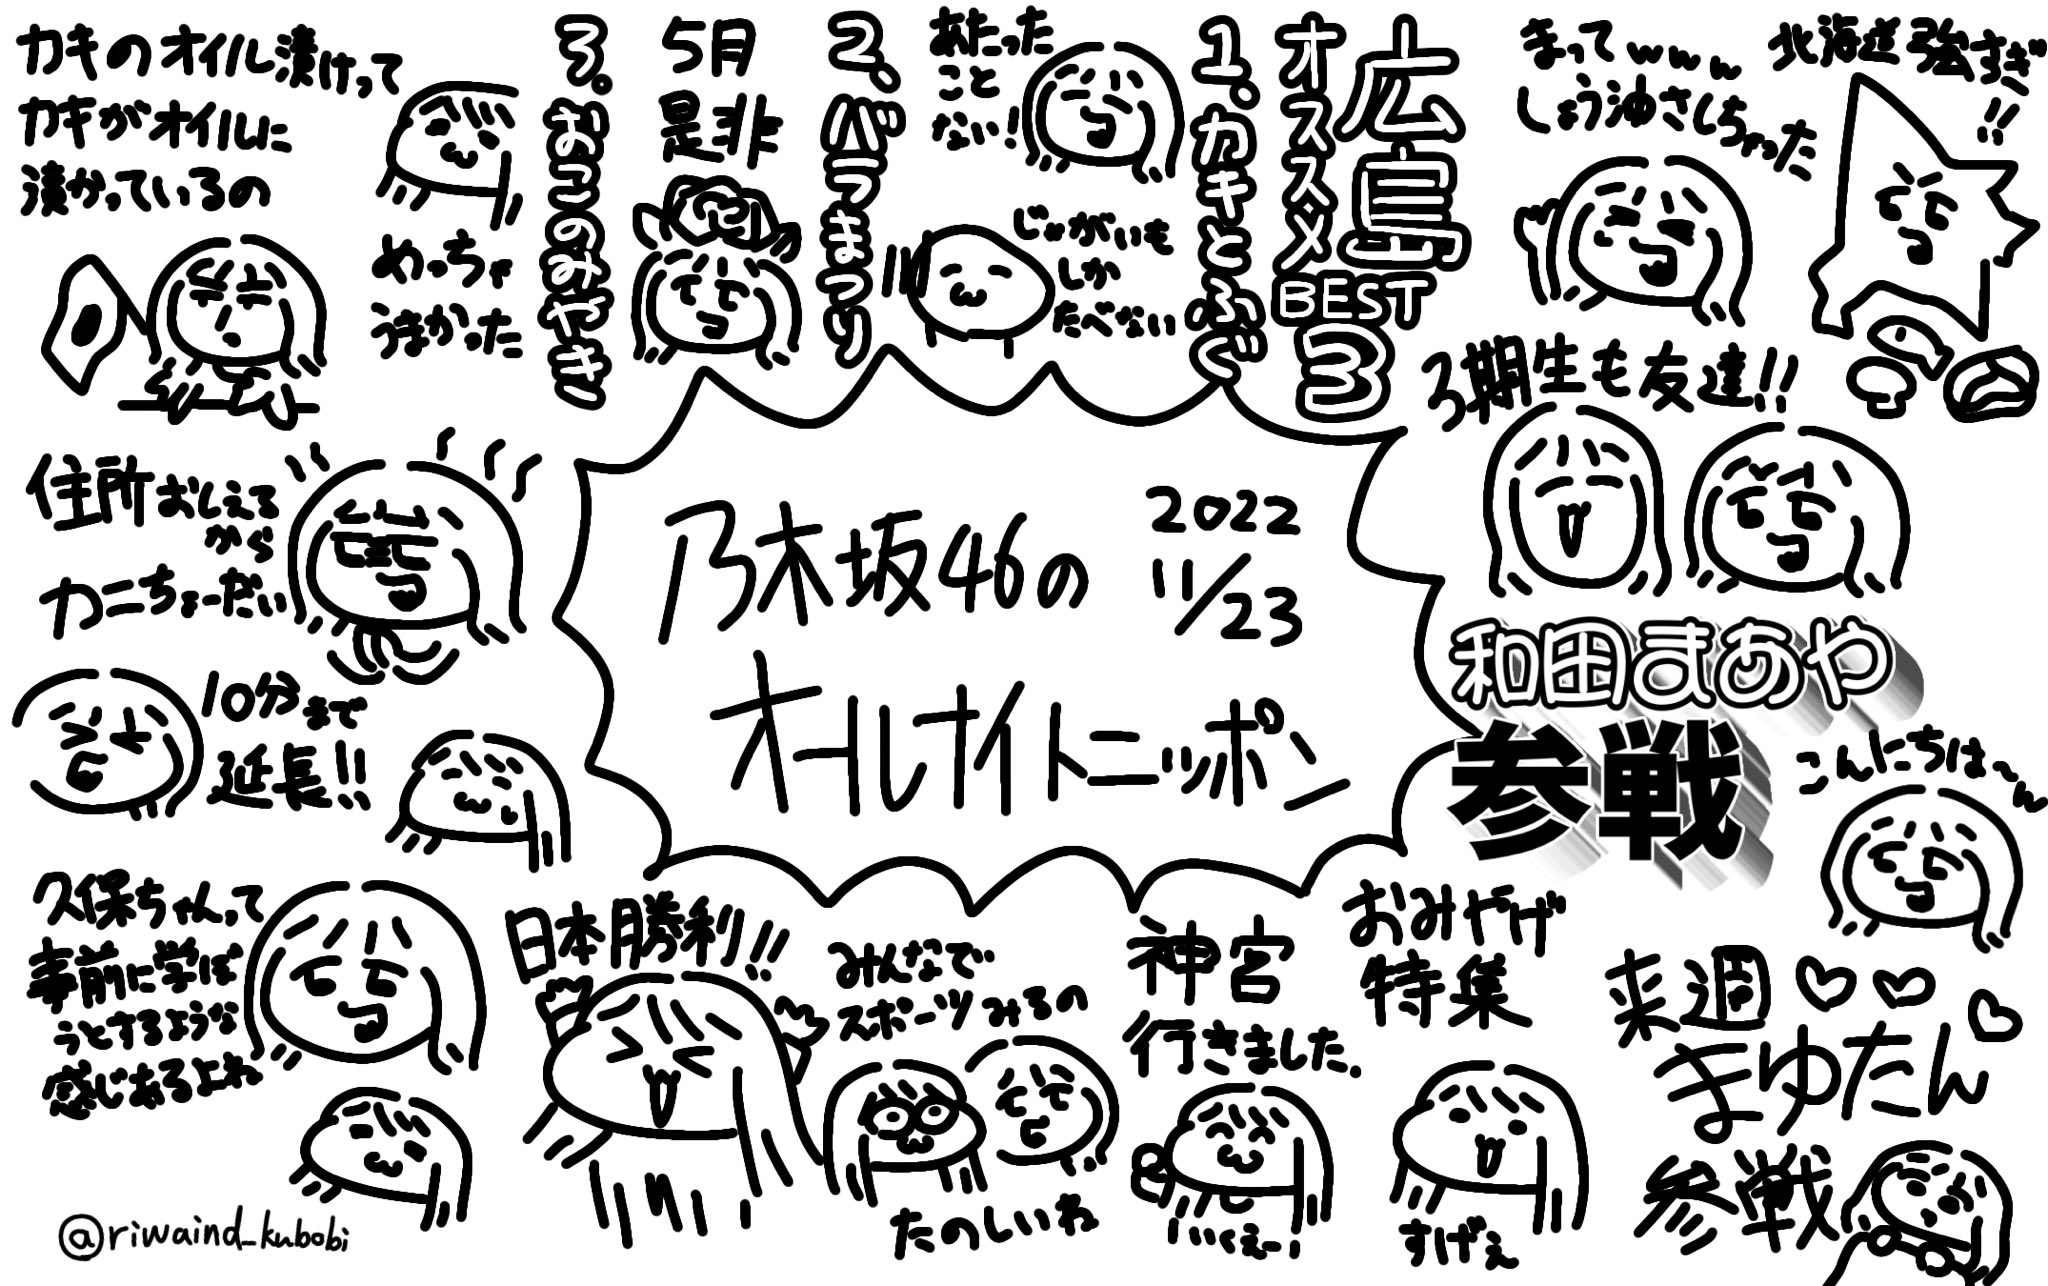 乃木坂46の
オールナイトニッポン
2022
11/23
和田まあや
参戦
こんにちは〜
3期生も友達!!
北海道強すぎ
!!
まってwww
しょう油さしちゃった
広島
オススメ
BEST
3
1.カキとふぐ
あたった
こと
ない!
じゃがいも
しか
たべない
2.バラまつり
5月
是非
3.おこのみやき
めっちゃ
うまかった
カキのオイル漬けって
カキがオイルに
漬かっているの
住所おしえる
から
カニちょーだい
10分まで
延長!!
久保ちゃんって
事前に学ぼ
うとするような
感じあるよね
日本勝利!!
みんなで
スポーツみるの
たのしいね
神宮
行きました.
いくぇー!
おみやげ
特集
すげぇ
来週♡♡♡
まゆたん
参戦
@riwaind_kubobi